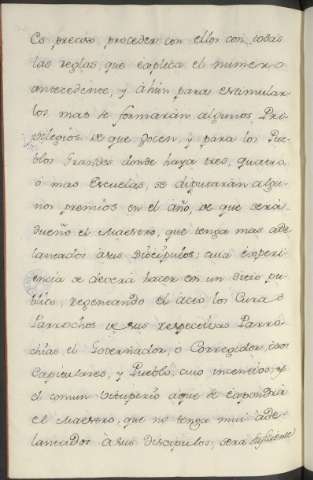 Es preciso proceder con ellos con todas
las reglas que explica el numero
antecedente, y ahùn para estimular
los mas se formaràn algunos Pri-
vilegios de que gocen, y para los Pue-
blos Grandes donde haya tres, quatro,
ò mas Escuelas, se diputaràn algu-
nos premios en el año, de que serà
dueño el Maestro, que tenga mas ade-
lantados à sus Discipulos, cuia experi-
encia se deverà hacer con un Acto pu-
blico, regenteando el Acto los Curas
Parrochos de sus respectivas Parro-
chias el Governador, o Corregidor,
Capitulares, y Pueblo, cuio incentivo, y
el comun vituperio à que se expondrà
el Maestro, que no tenga mui ade-
lantados à sus discipulos, serà suficiente